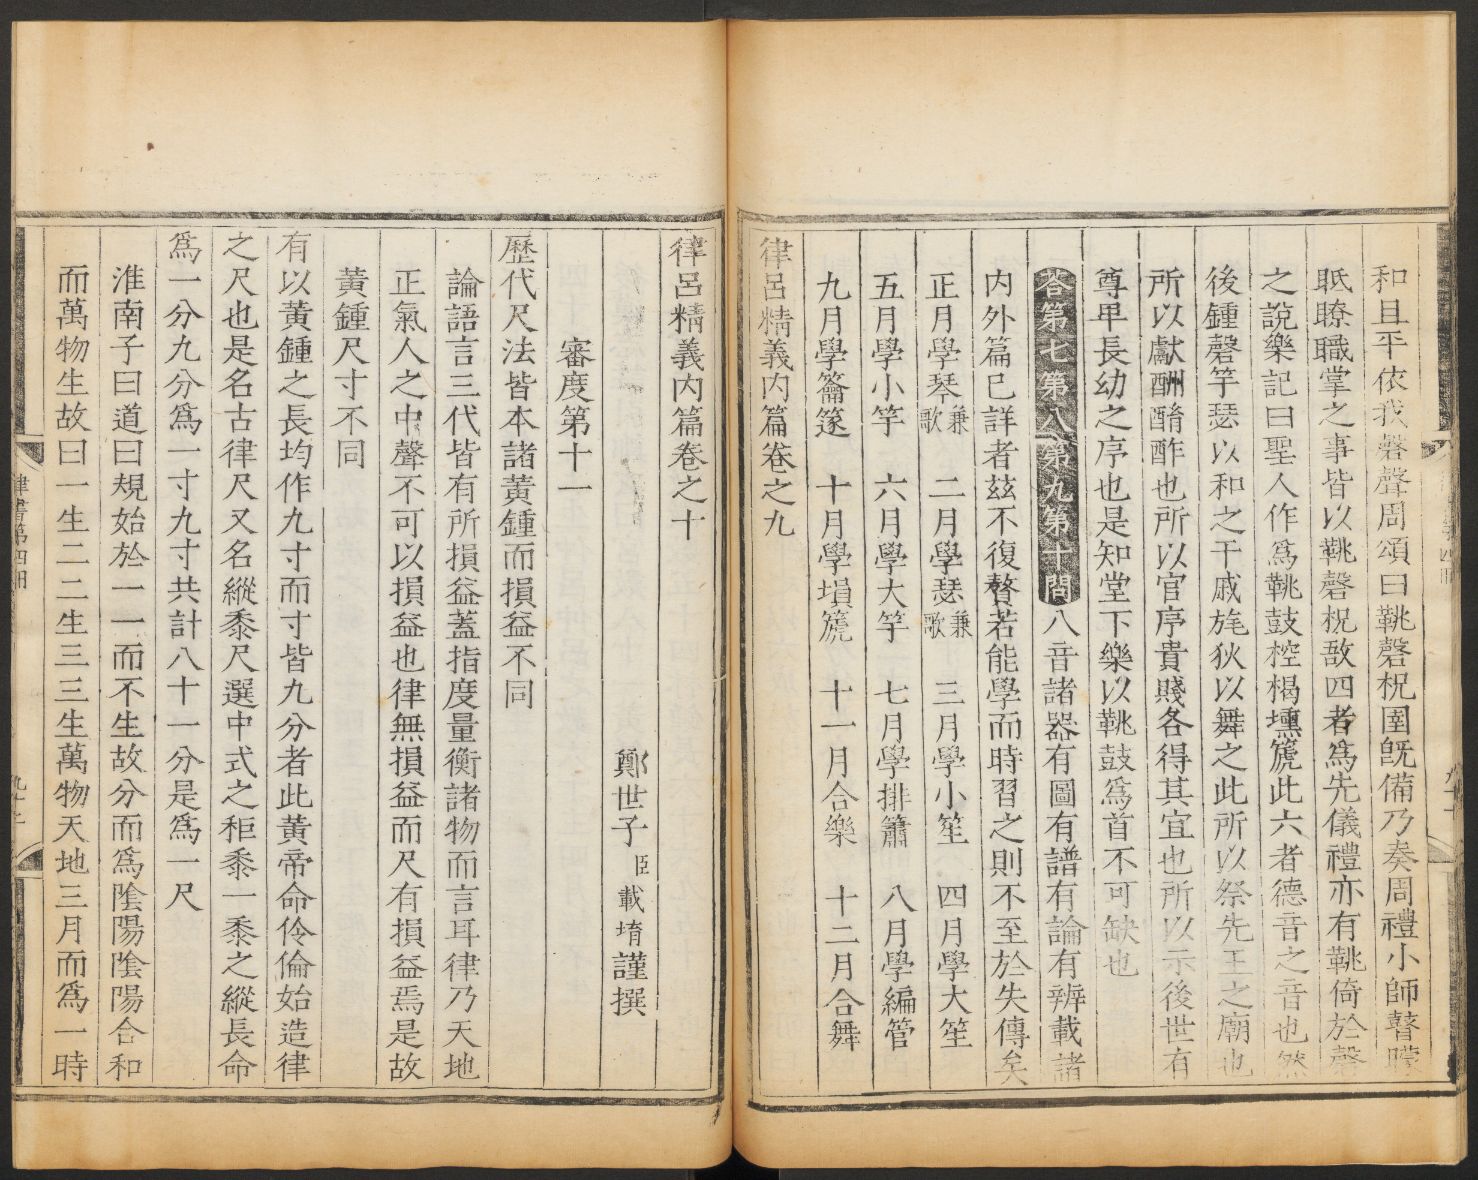 和且平依我磬聲周頌曰鞉磬柷圉旣備乃奏周禮小師瞽矇
眂瞭職掌之事皆以鞉磬柷敔四者爲先儀禮亦有鞉倚於磬
之說樂記曰聖人作爲鞉鼓椌楬壎篪此六者德音之音也然
後鍾磬竽瑟以和之干戚旄狄以舞之此所以祭先王之廟也
所以獻酬酳酢也所以官序貴賤各得其宜也所以示後世有
尊卑長幼之序也是知堂下樂以鞉鼓爲首不可缺也
荅第七第八第九第十問八音諸器有圖有譜有論有辨載諸
内外篇已詳者茲不復贅若能學而時習之則不至於失傳矣
正月學琴兼歌 二月學瑟兼歌 三月學小笙 四月學大笙
五月學小竽 六月學大竽 七月學排簫 八月學編管
九月學籥篴 十月學塤篪 十一月合樂 十二月合舞
律呂精義内篇卷之九
律呂精義内篇卷之十
鄭世子臣載堉謹撰
審度第十一
歷代尺法皆本諸黃鍾而損益不同
論語言三代皆有所損益蓋指度量衡諸物而言耳律乃天地
正氣人之中聲不可以損益也律無損益而尺有損益焉是故
黃鍾尺寸不同
有以黃鍾之長均作九寸而寸皆九分者此黃帝命伶倫始造律
之尺也是名古律尺又名縱黍尺選中式之秬黍一黍之縱長命
爲一分九分爲一寸九寸共計八十一分是爲一尺
淮南子曰道曰規始於一一而不生故分而爲陰陽陰陽合和
而萬物生故曰一生二二生三三生萬物天地三月而爲一時
律書第四冊